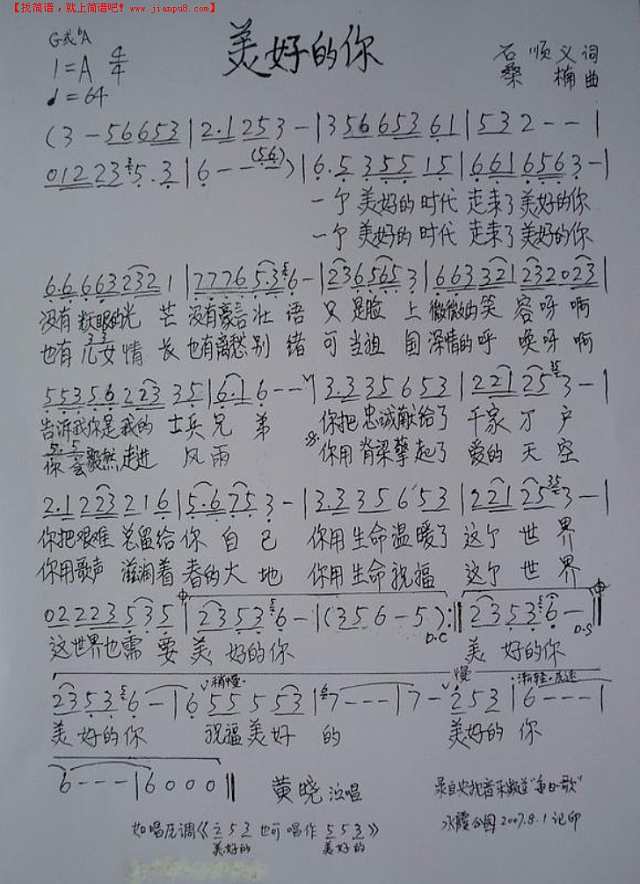 【找简谱，就上简谱吧！www.jianpu8.com】
美好的你
G或ᵇA
1=A 4/4
♩=64
石顺义 词
桑楠 曲
(3 - 56653 | 2.1 253 - | 356 653 61 | 532 - - |
0122 23 5.3 | 6 - - (56) ) | 6.5 355 15 | 661 6563 - |
一个 美好的 时代 走来了 美好的你
一个 美好的 时代 走来了 美好的你
6.6 663 232 1 | 7776 5.3 6 - | 236 565 3 | 663 321 232023 |
没有 耀眼的光 芒 没有豪言 壮 语 只 是脸 上 微微的笑 容呀啊
也有 儿女情 长 也有离愁 别 绪 可 当祖 国 深情的呼 唤呀啊
553 5.6 223 35 | 6.1 6 - - | 3.3 35 6 53 | 221 25 3 - |
告诉我你是我的 士兵兄 弟 你把 忠诚献给了 千家 万 户
你会毅然走进 风雨 你用 脊梁擎起了 爱的 天 空
2.1 223 21 6 | 5.6 75 3 - | 3.3 35 6 53 | 221 25 3 - |
你把艰难 总留给 你 自 己 你用 生命温暖了 这个 世 界
你用歌声 滋润着 春的大 地 你用 生命祝福 这个 世 界
022 23 535 | 2353 6 - | (356 - 5) :|| 2353 6 - ||
D.C D.S
这世界也需 要 美 好的你 美 好的你
稍慢 慢 渐轻·
2353 6 - | 6 55 5 53 | 7 - - - | 7 - 253 | 6 - - - |
美 好的你 祝福 美好 的 美好的 你
6 - - - | 6 0 0 0 ||
黄晓 演唱
2007.8.1 记印
如唱厄调《253 也可唱作 553》
美好的 美好的